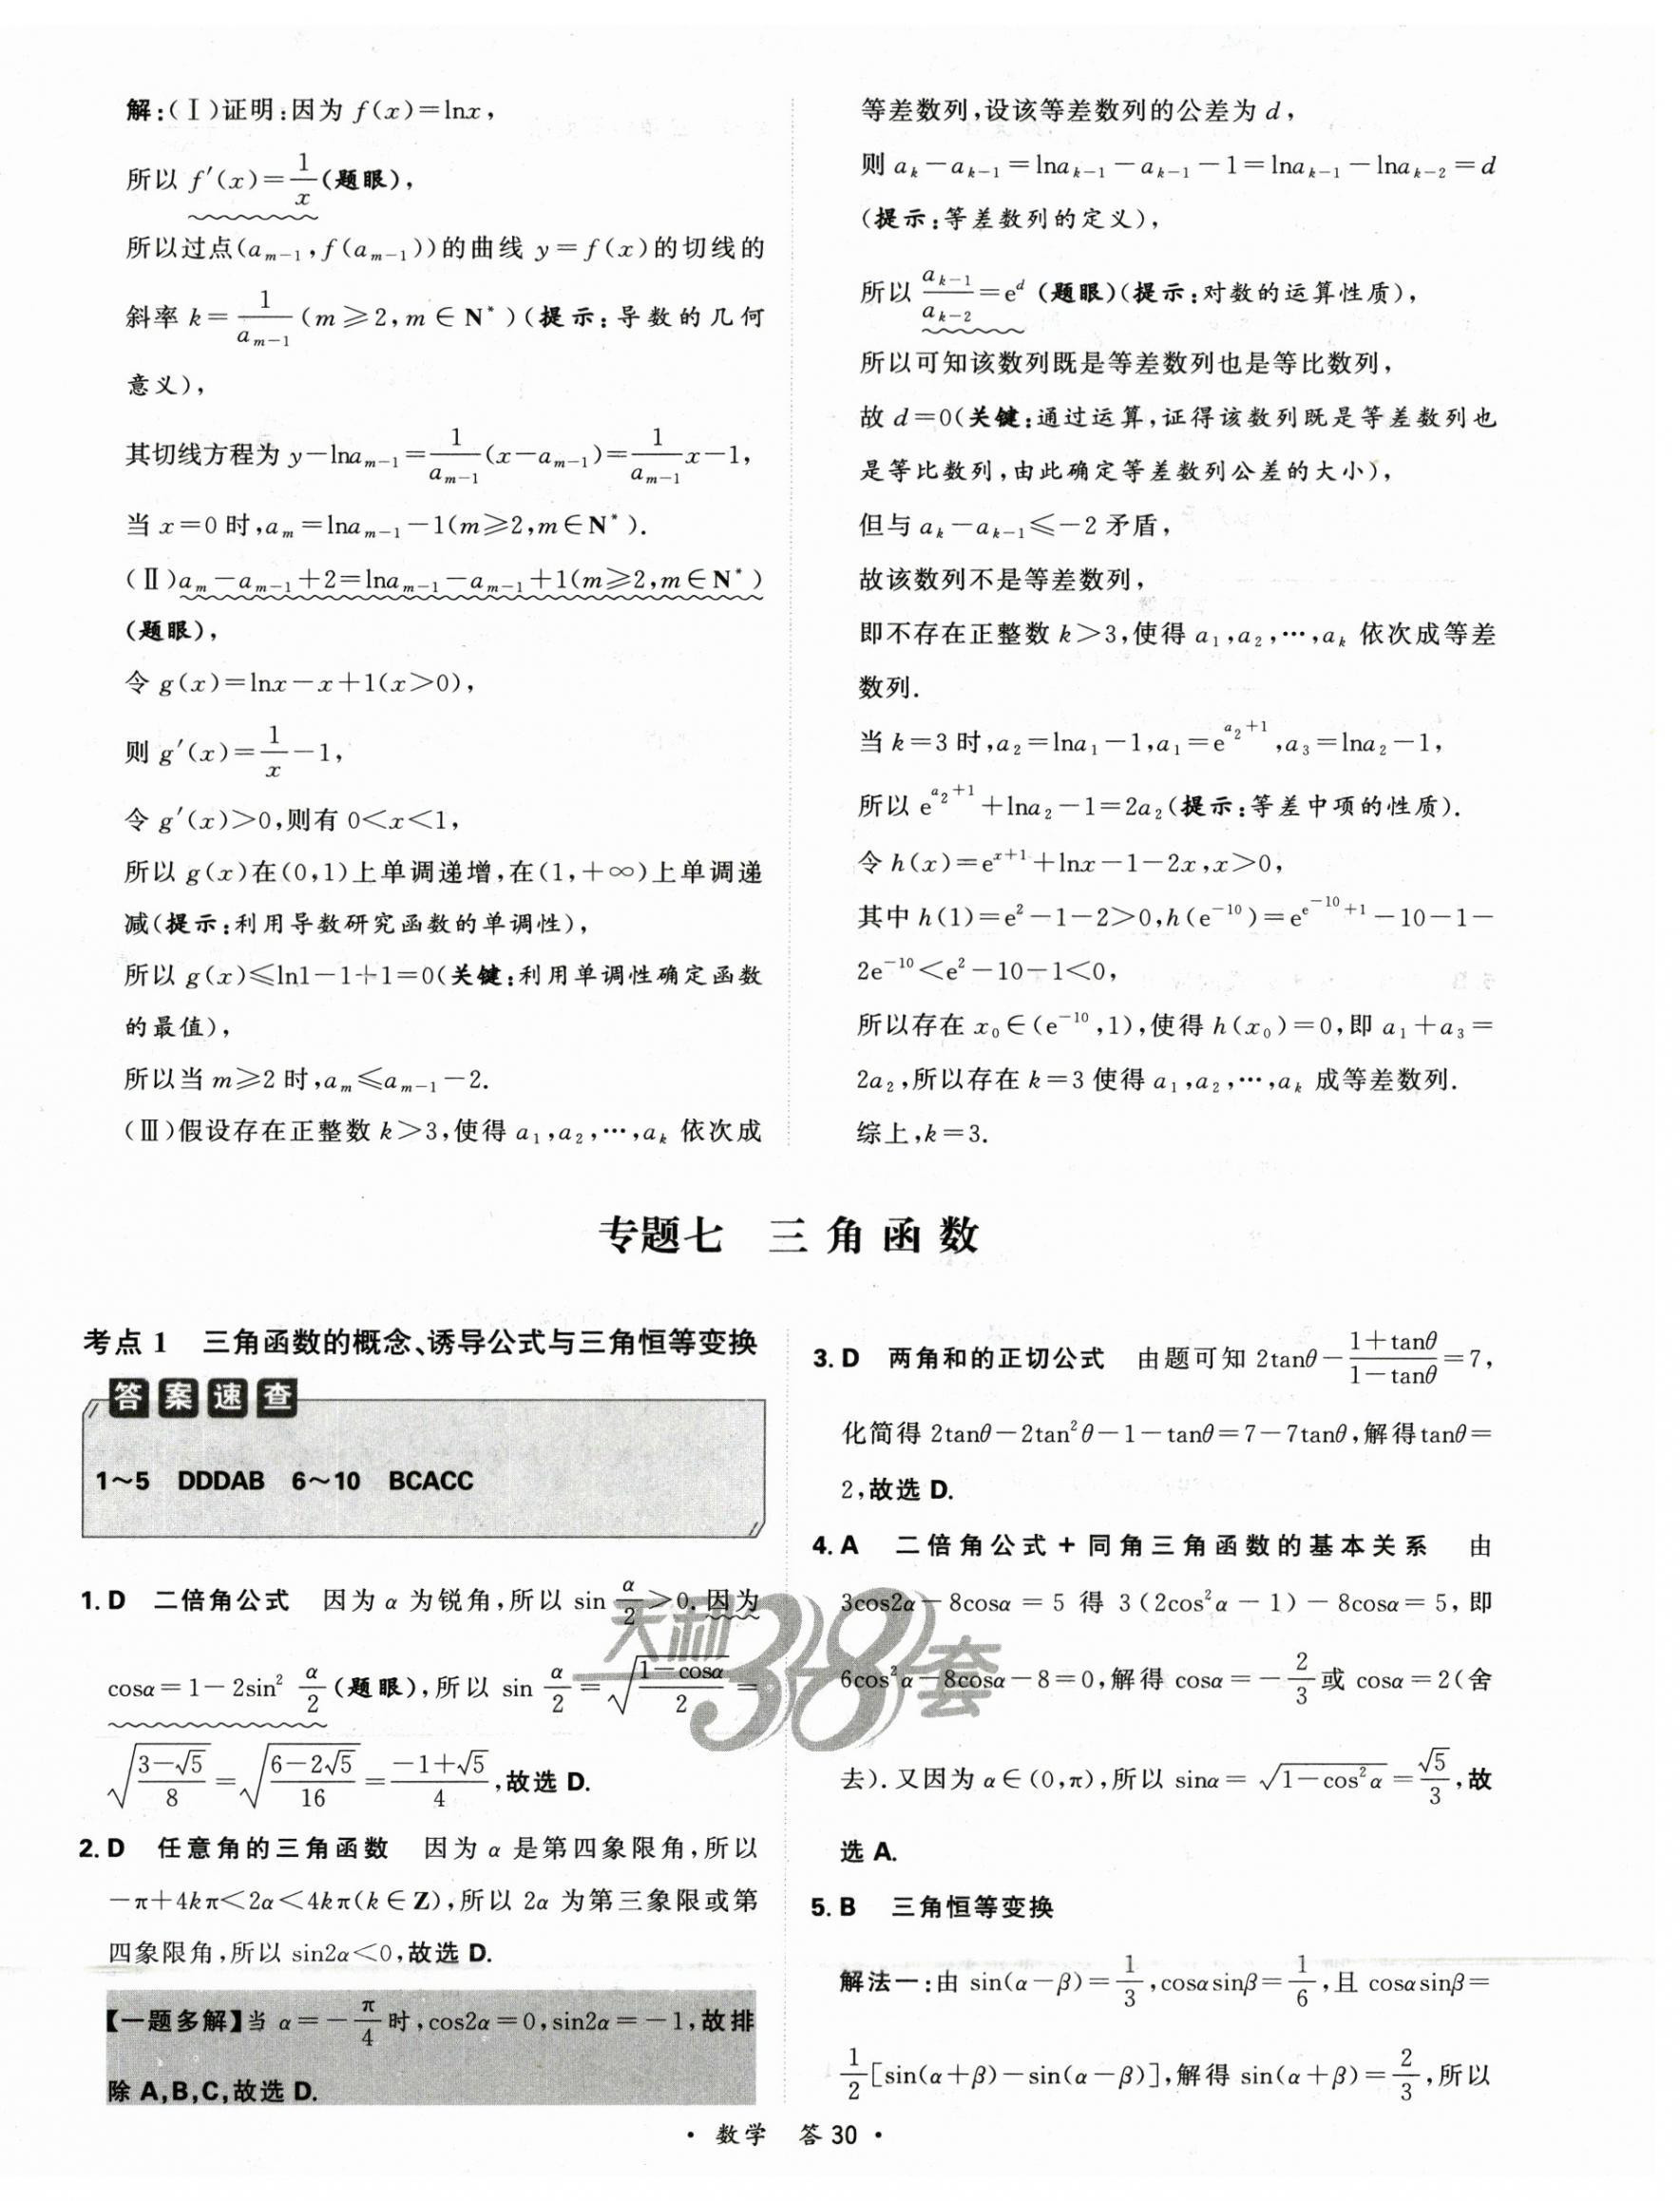 解:(Ⅰ)证明:因为 f(x)=lnx,
所以 f′(x)=1/x(题眼),
所以过点(a_{m-1},f(a_{m-1}))的曲线 y=f(x)的切线的
斜率 k=1/a_{m-1}(m≥2,m∈N*)(提示:导数的几何
意义),
其切线方程为 y-lna_{m-1}=1/a_{m-1}(x-a_{m-1})=1/a_{m-1}x-1,
当 x=0 时,a_m=lna_{m-1}-1(m≥2,m∈N*).
(Ⅱ)a_m-a_{m-1}+2=lna_{m-1}-a_{m-1}+1(m≥2,m∈N*)
(题眼),
令 g(x)=lnx-x+1(x>0),
则 g′(x)=1/x-1,
令 g′(x)>0,则有 0<x<1,
所以 g(x)在(0,1)上单调递增,在(1,+∞)上单调递
减(提示:利用导数研究函数的单调性),
所以 g(x)≤ln1-1+1=0(关键:利用单调性确定函数
的最值),
所以当 m≥2 时,a_m≤a_{m-1}-2.
(Ⅲ)假设存在正整数 k>3,使得 a_1,a_2,…,a_k 依次成
等差数列,设该等差数列的公差为 d,
则 a_k-a_{k-1}=lna_{k-1}-a_{k-1}-1=lna_{k-1}-lna_{k-2}=d
(提示:等差数列的定义),
所以 a_{k-1}/a_{k-2}=e^d(题眼)(提示:对数的运算性质),
所以可知该数列既是等差数列也是等比数列,
故 d=0(关键:通过运算,证得该数列既是等差数列也
是等比数列,由此确定等差数列公差的大小),
但与 a_k-a_{k-1}≤-2 矛盾,
故该数列不是等差数列,
即不存在正整数 k>3,使得 a_1,a_2,…,a_k 依次成等差
数列.
当 k=3 时,a_2=lna_1-1,a_1=e^{a_2+1},a_3=lna_2-1,
所以 e^{a_2+1}+lna_2-1=2a_2(提示:等差中项的性质).
令 h(x)=e^{x+1}+lnx-1-2x,x>0,
其中 h(1)=e²-1-2>0,h(e^{-10})=e^{e^{-10}+1}-10-1-
2e^{-10}<e²-10-1<0,
所以存在 x_0∈(e^{-10},1),使得 h(x_0)=0,即 a_1+a_3=
2a_2,所以存在 k=3 使得 a_1,a_2,…,a_k 成等差数列.
综上,k=3.
专题七 三角函数
考点 1 三角函数的概念、诱导公式与三角恒等变换
答案速查
1~5 DDDAB 6~10 BCACC
1. D 二倍角公式 因为 α 为锐角,所以 sin α/2>0. 因为
cosα=1-2sin² α/2(题眼),所以 sin α/2=√((1-cosα)/2)=
√((3-√5)/8)=√((6-2√5)/16)=(-1+√5)/4,故选 D.
2. D 任意角的三角函数 因为 α 是第四象限角,所以
-π+4kπ<2α<4kπ(k∈Z),所以 2α 为第三象限或第
四象限角,所以 sin2α<0,故选 D.
【一题多解】当 α=-π/4 时,cos2α=0,sin2α=-1,故排
除 A,B,C,故选 D.
3. D 两角和的正切公式 由题可知 2tanθ-(1+tanθ)/(1-tanθ)=7,
化简得 2tanθ-2tan²θ-1-tanθ=7-7tanθ,解得tanθ=
2,故选 D.
4. A 二倍角公式+同角三角函数的基本关系 由
3cos2α-8cosα=5 得 3(2cos²α-1)-8cosα=5,即
6cos²α-8cosα-8=0,解得 cosα=-2/3或 cosα=2(舍
去). 又因为 α∈(0,π),所以 sinα=√(1-cos²α)=√5/3,故
选 A.
5. B 三角恒等变换
解法一:由 sin(α-β)=1/3,cosαsinβ=1/6,且 cosαsinβ=
1/2[sin(α+β)-sin(α-β)],解得 sin(α+β)=2/3,所以
天利38套
· 数学 答 30 ·